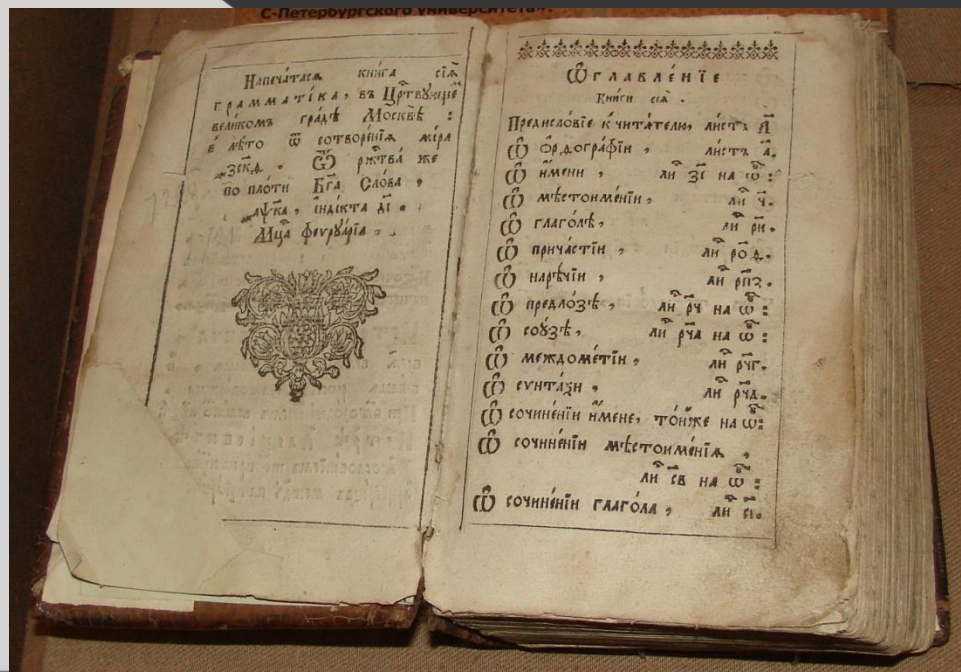 С-Петербургского университета".
Напечатасѧ книга сїѧ̀
грамматі́ка, въ Црⷭ҇твꙋющеⷨ
вели́комъ гра́дѣ Москвѣ̀ :
в лѣ́то ѿ сотворе́нїѧ мі́ра
҂зск҃ѳ . Ѿ ржⷭ҇тва́ же
по пло́ти Бг҃а Сло́ва ,
҂аѱк҃а , їнді́кта д҃і .
Мцⷭ҇а феѵрꙋа́рїа .
Ѡ҆главле́нїе
Кни́ги сеѧ̀ .
Предисло́вїе к̾ чита́телю, ли́стъ а҃
Ѽ ѻ҆рѳогра́фїи , ли́стъ а҃.
Ѽ и҆́мени , лиⷭ҇ з҃і на ѡ҆бⷪ҇ :
Ѽ мѣстоиме́нїи , лиⷭ҇ ч҃.
Ѽ глаго́лѣ , лиⷭ҇ рн҃.
Ѽ прича́стїи , лиⷭ҇ ро҃д.
Ѽ нарѣ́чїи , лиⷭ҇ рп҃з.
Ѽ предло́зѣ , лиⷭ҇ рч҃ на ѡ҆бⷪ҇ :
Ѽ сою́зѣ , лиⷭ҇ рч҃а на ѡ҆бⷪ҇ :
Ѽ междоме́тїи , лиⷭ҇ рч҃г.
Ѽ сѵнта́ѯи , лиⷭ҇ рч҃д.
Ѽ сочине́нїи и҆́мене, то́йже на ѡ҆бⷪ҇ :
Ѽ сочине́нїи мѣстоиме́нїѧ ,
лиⷭ҇ св҃ на ѡ҆бⷪ҇ :
Ѽ сочине́нїи глаго́ла , лиⷭ҇ сі҃.